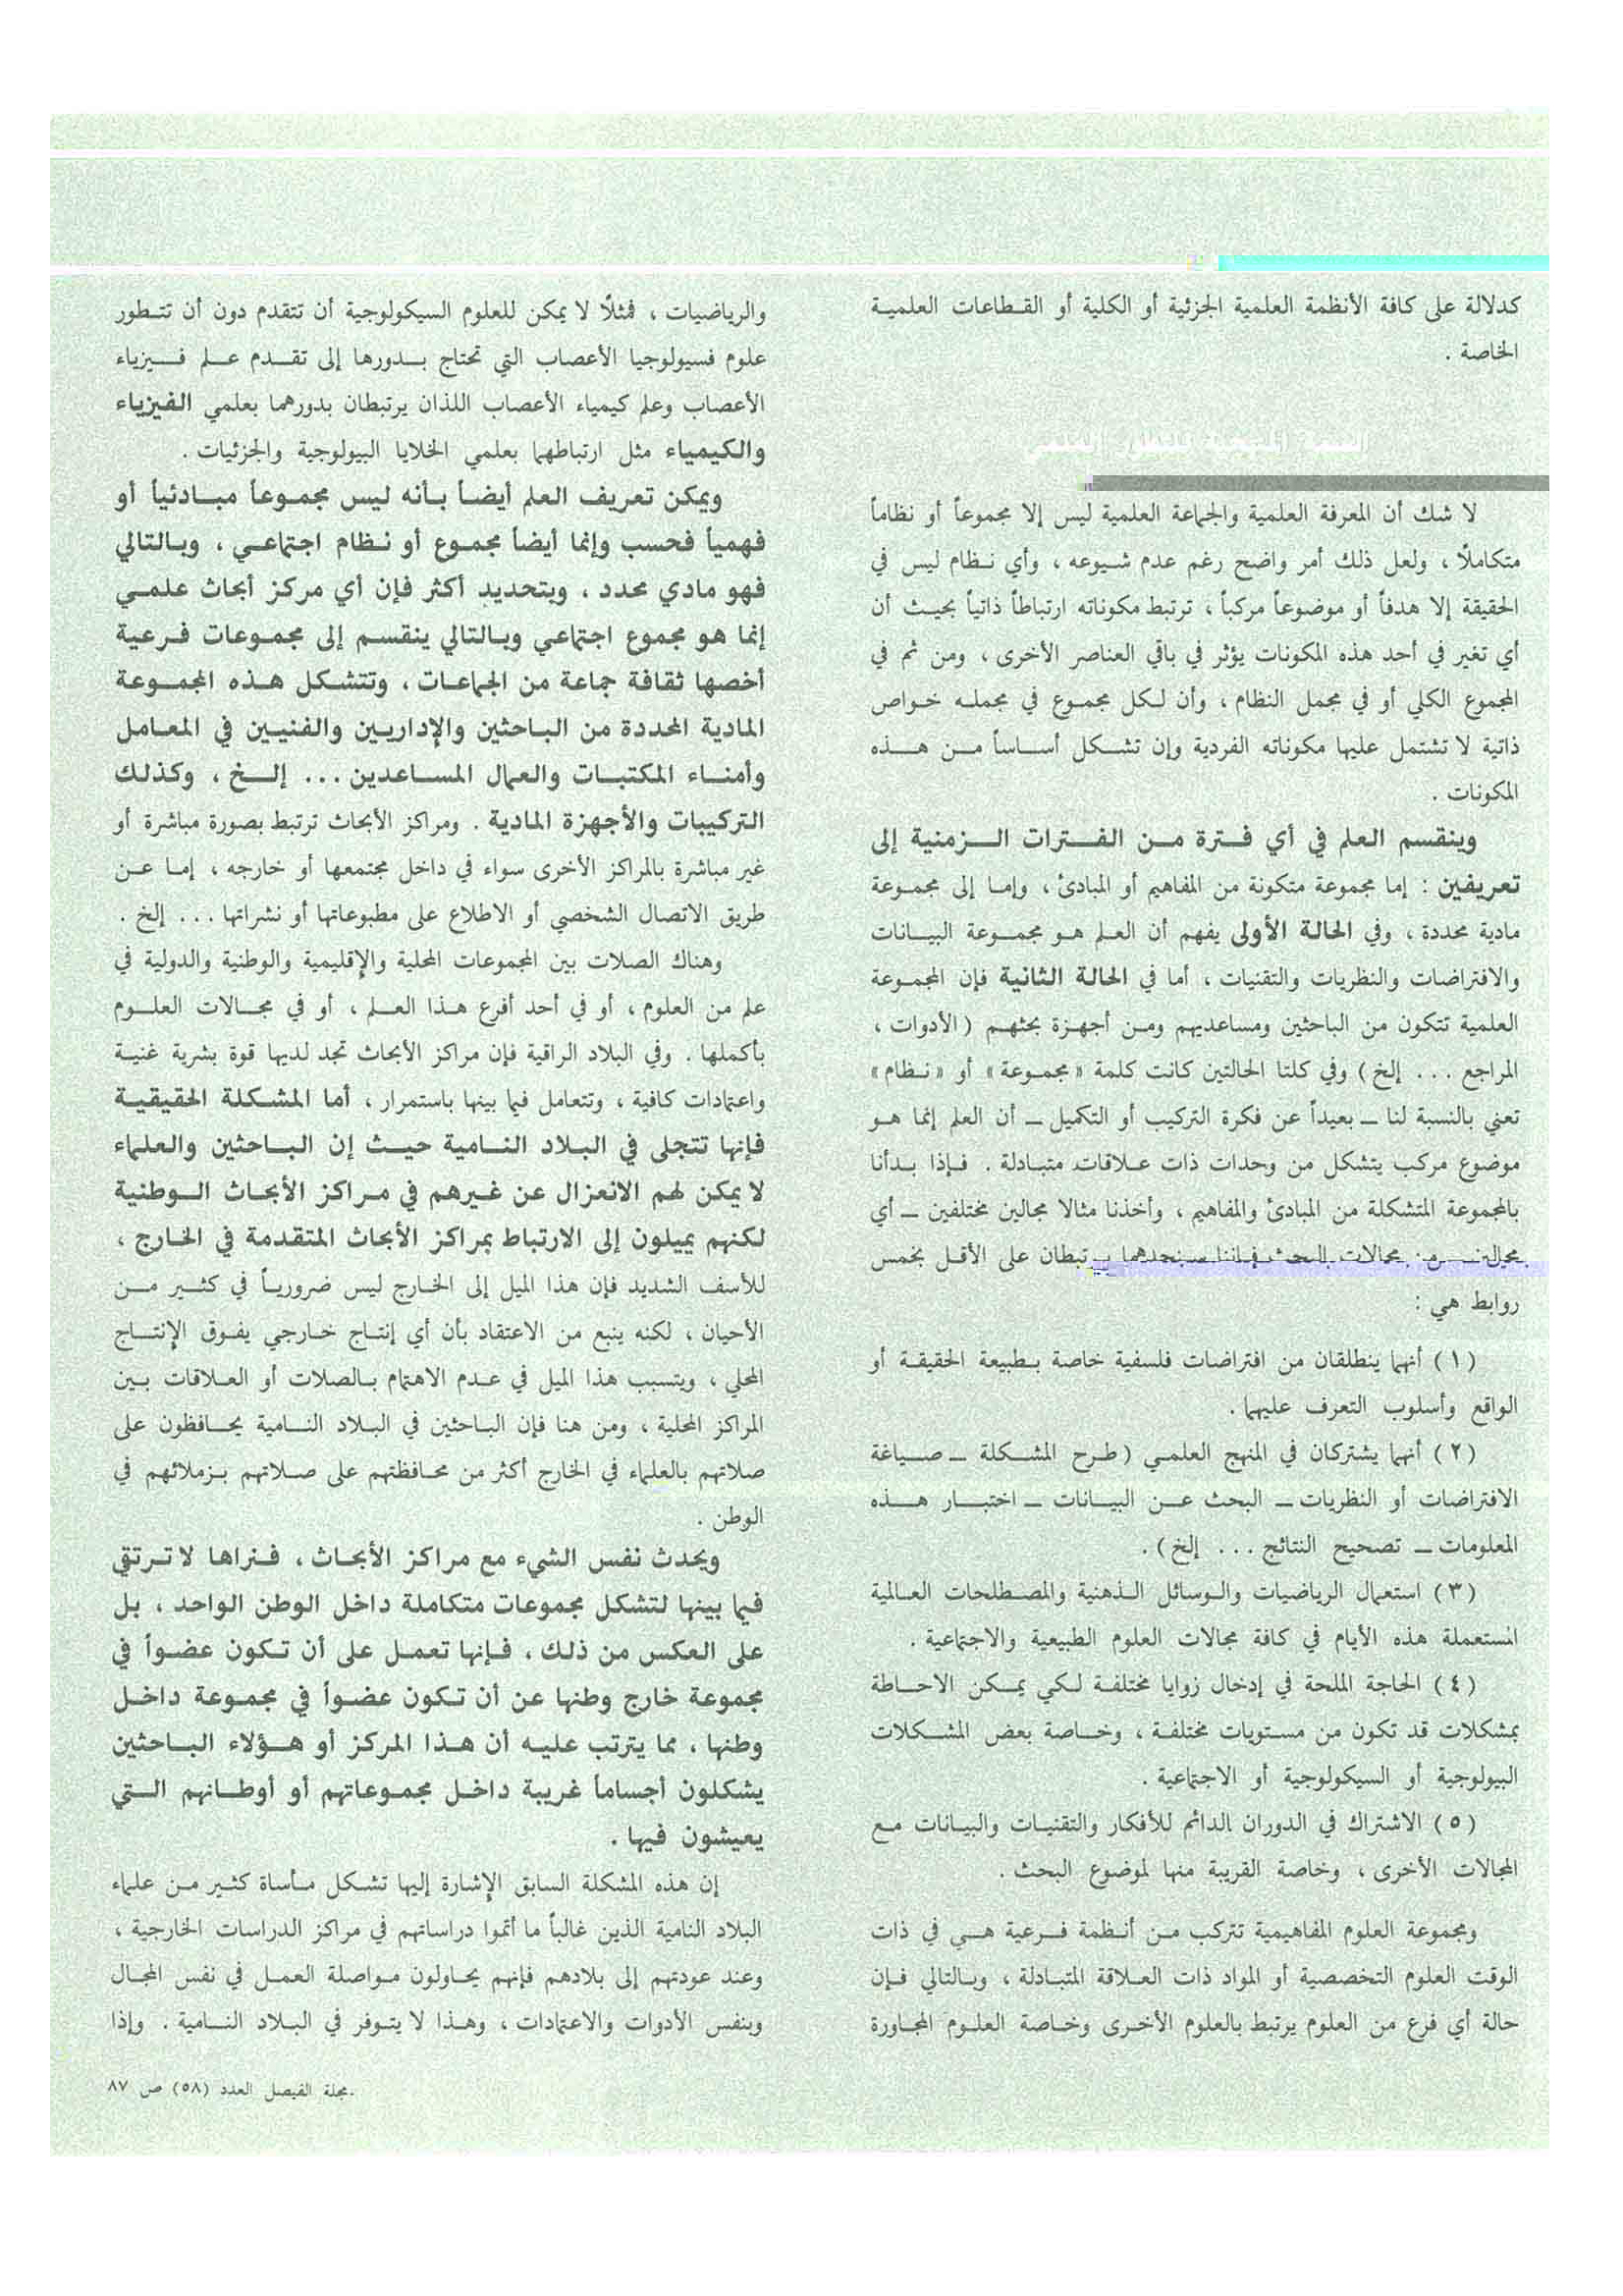 كدلالة على كافة الأنظمة العلمية الجزئية أو الكلية أو القطاعات العلمية
الخاصة .
لا شك أن المعرفة العلمية والجماعة العلمية ليس إلا مجموعاً أو نظاماً
متكاملاً ، ولعل ذلك أمر واضح رغم عدم شيوعه ، وأي نظام ليس في
الحقيقة إلا هدفاً أو موضوعاً مركباً ، ترتبط مكوناته ارتباطاً ذاتياً بحيث أن
أي تغير في أحد هذه المكونات يؤثر في باقي العناصر الأخرى ، ومن ثم في
المجموع الكلي أو في مجمل النظام ، وأن لكل مجموع في مجمله خواص
ذاتية لا تشتمل عليها مكوناته الفردية وإن تشكل أساساً من هذه
المكونات .
وينقسم العلم في أي فترة من الفترات الزمنية إلى
تعريفين : إما مجموعة متكونة من المفاهيم أو المبادئ ، وإما إلى مجموعة
مادية محددة ، وفي الحالة الأولى يفهم أن العلم هو مجموعة البيانات
والافتراضات والنظريات والتقنيات ، أما في الحالة الثانية فإن المجموعة
العلمية تتكون من الباحثين ومساعديهم ومن أجهزة بحثهم ( الأدوات ،
المراجع ... إلخ ) وفي كلتا الحالتين كانت كلمة « مجموعة » أو « نظام »
تعني بالنسبة لنا ــ بعيداً عن فكرة التركيب أو التكميل ــ أن العلم إنما هو
موضوع مركب يتشكل من وحدات ذات علاقات متبادلة . فإذا بدأنا
بالمجموعة المتشكلة من المبادئ والمفاهيم ، وأخذنا مثالا مجالين مختلفين ــ أي
مجالين ــ من مجالات البحث فإننا سنجدهما يرتبطان على الأقل بخمس
روابط هي :
( ١ ) أنهما ينطلقان من افتراضات فلسفية خاصة بطبيعة الحقيقة أو
الواقع وأسلوب التعرف عليهما .
( ٢ ) أنهما يشتركان في المنهج العلمي ( طرح المشكلة ــ صياغة
الافتراضات أو النظريات ــ البحث عن البيانات ــ اختبار هذه
المعلومات ــ تصحيح النتائج ... إلخ ) .
( ٣ ) استعمال الرياضيات والوسائل الذهنية والمصطلحات العالمية
المستعملة هذه الأيام في كافة مجالات العلوم الطبيعية والاجتماعية .
( ٤ ) الحاجة الملحة في إدخال زوايا مختلفة لكي يمكن الاحاطة
بمشكلات قد تكون من مستويات مختلفة ، وخاصة بعض المشكلات
البيولوجية أو السيكولوجية أو الاجتماعية .
( ٥ ) الاشتراك في الدوران الدائم للأفكار والتقنيات والبيانات مع
المجالات الأخرى ، وخاصة القريبة منها لموضوع البحث .
ومجموعة العلوم المفاهيمية تتركب من أنظمة فرعية هي في ذات
الوقت العلوم التخصصية أو المواد ذات العلاقة المتبادلة ، وبالتالي فإن
حالة أي فرع من العلوم يرتبط بالعلوم الأخرى وخاصة العلوم المجاورة
والرياضيات ، فمثلاً لا يمكن للعلوم السيكولوجية أن تتقدم دون أن تتطور
علوم فسيولوجيا الأعصاب التي تحتاج بدورها إلى تقدم علم فيزياء
الأعصاب وعلم كيمياء الأعصاب اللذان يرتبطان بدورهما بعلمي الفيزياء
والكيمياء مثل ارتباطهما بعلمي الخلايا البيولوجية والجزئيات .
ويمكن تعريف العلم أيضاً بأنه ليس مجموعاً مبادئياً أو
فهمياً فحسب وإنما أيضاً مجموع أو نظام اجتماعي ، وبالتالي
فهو مادي محدد ، وبتحديد أكثر فإن أي مركز أبحاث علمي
إنما هو مجموع اجتماعي وبالتالي ينقسم إلى مجموعات فرعية
أخصها ثقافة جماعة من الجماعات ، وتتشكل هذه المجموعة
المادية المحددة من الباحثين والإداريين والفنيين في المعامل
وأمناء المكتبات والعمال المساعدين ... إلخ ، وكذلك
التركيبات والأجهزة المادية . ومراكز الأبحاث ترتبط بصورة مباشرة أو
غير مباشرة بالمراكز الأخرى سواء في داخل مجتمعها أو خارجه ، إما عن
طريق الاتصال الشخصي أو الاطلاع على مطبوعاتها أو نشراتها ... إلخ .
وهناك الصلات بين المجموعات المحلية والإقليمية والوطنية والدولية في
علم من العلوم ، أو في أحد أفرع هذا العلم ، أو في مجالات العلوم
بأكملها . وفي البلاد الراقية فإن مراكز الأبحاث تجد لديها قوة بشرية غنية
واعتمادات كافية ، وتتعامل فيما بينها باستمرار ، أما المشكلة الحقيقية
فإنها تتجلى في البلاد النامية حيث إن الباحثين والعلماء
لا يمكن لهم الانعزال عن غيرهم في مراكز الأبحاث الوطنية
لكنهم يميلون إلى الارتباط بمراكز الأبحاث المتقدمة في الخارج ،
للأسف الشديد فإن هذا الميل إلى الخارج ليس ضرورياً في كثير من
الأحيان ، لكنه ينبع من الاعتقاد بأن أي إنتاج خارجي يفوق الإنتاج
المحلي ، ويتسبب هذا الميل في عدم الاهتمام بالصلات أو العلاقات بين
المراكز المحلية ، ومن هنا فإن الباحثين في البلاد النامية يحافظون على
صلاتهم بالعلماء في الخارج أكثر من محافظتهم على صلاتهم بزملائهم في
الوطن .
ويحدث نفس الشيء مع مراكز الأبحاث ، فنراها لا ترتقي
فيما بينها لتشكل مجموعات متكاملة داخل الوطن الواحد ، بل
على العكس من ذلك ، فإنها تعمل على أن تكون عضواً في
مجموعة خارج وطنها عن أن تكون عضواً في مجموعة داخل
وطنها ، مما يترتب عليه أن هذا المركز أو هؤلاء الباحثين
يشكلون أجساماً غريبة داخل مجموعاتهم أو أوطانهم التي
يعيشون فيها .
إن هذه المشكلة السابق الإشارة إليها تشكل مأساة كثير من علماء
البلاد النامية الذين غالباً ما أتموا دراساتهم في مراكز الدراسات الخارجية ،
وعند عودتهم إلى بلادهم فإنهم يحاولون مواصلة العمل في نفس المجال
وبنفس الأدوات والاعتمادات ، وهذا لا يتوفر في البلاد النامية . وإذا
مجلة الفيصل العدد (٥٨) ص ٨٧